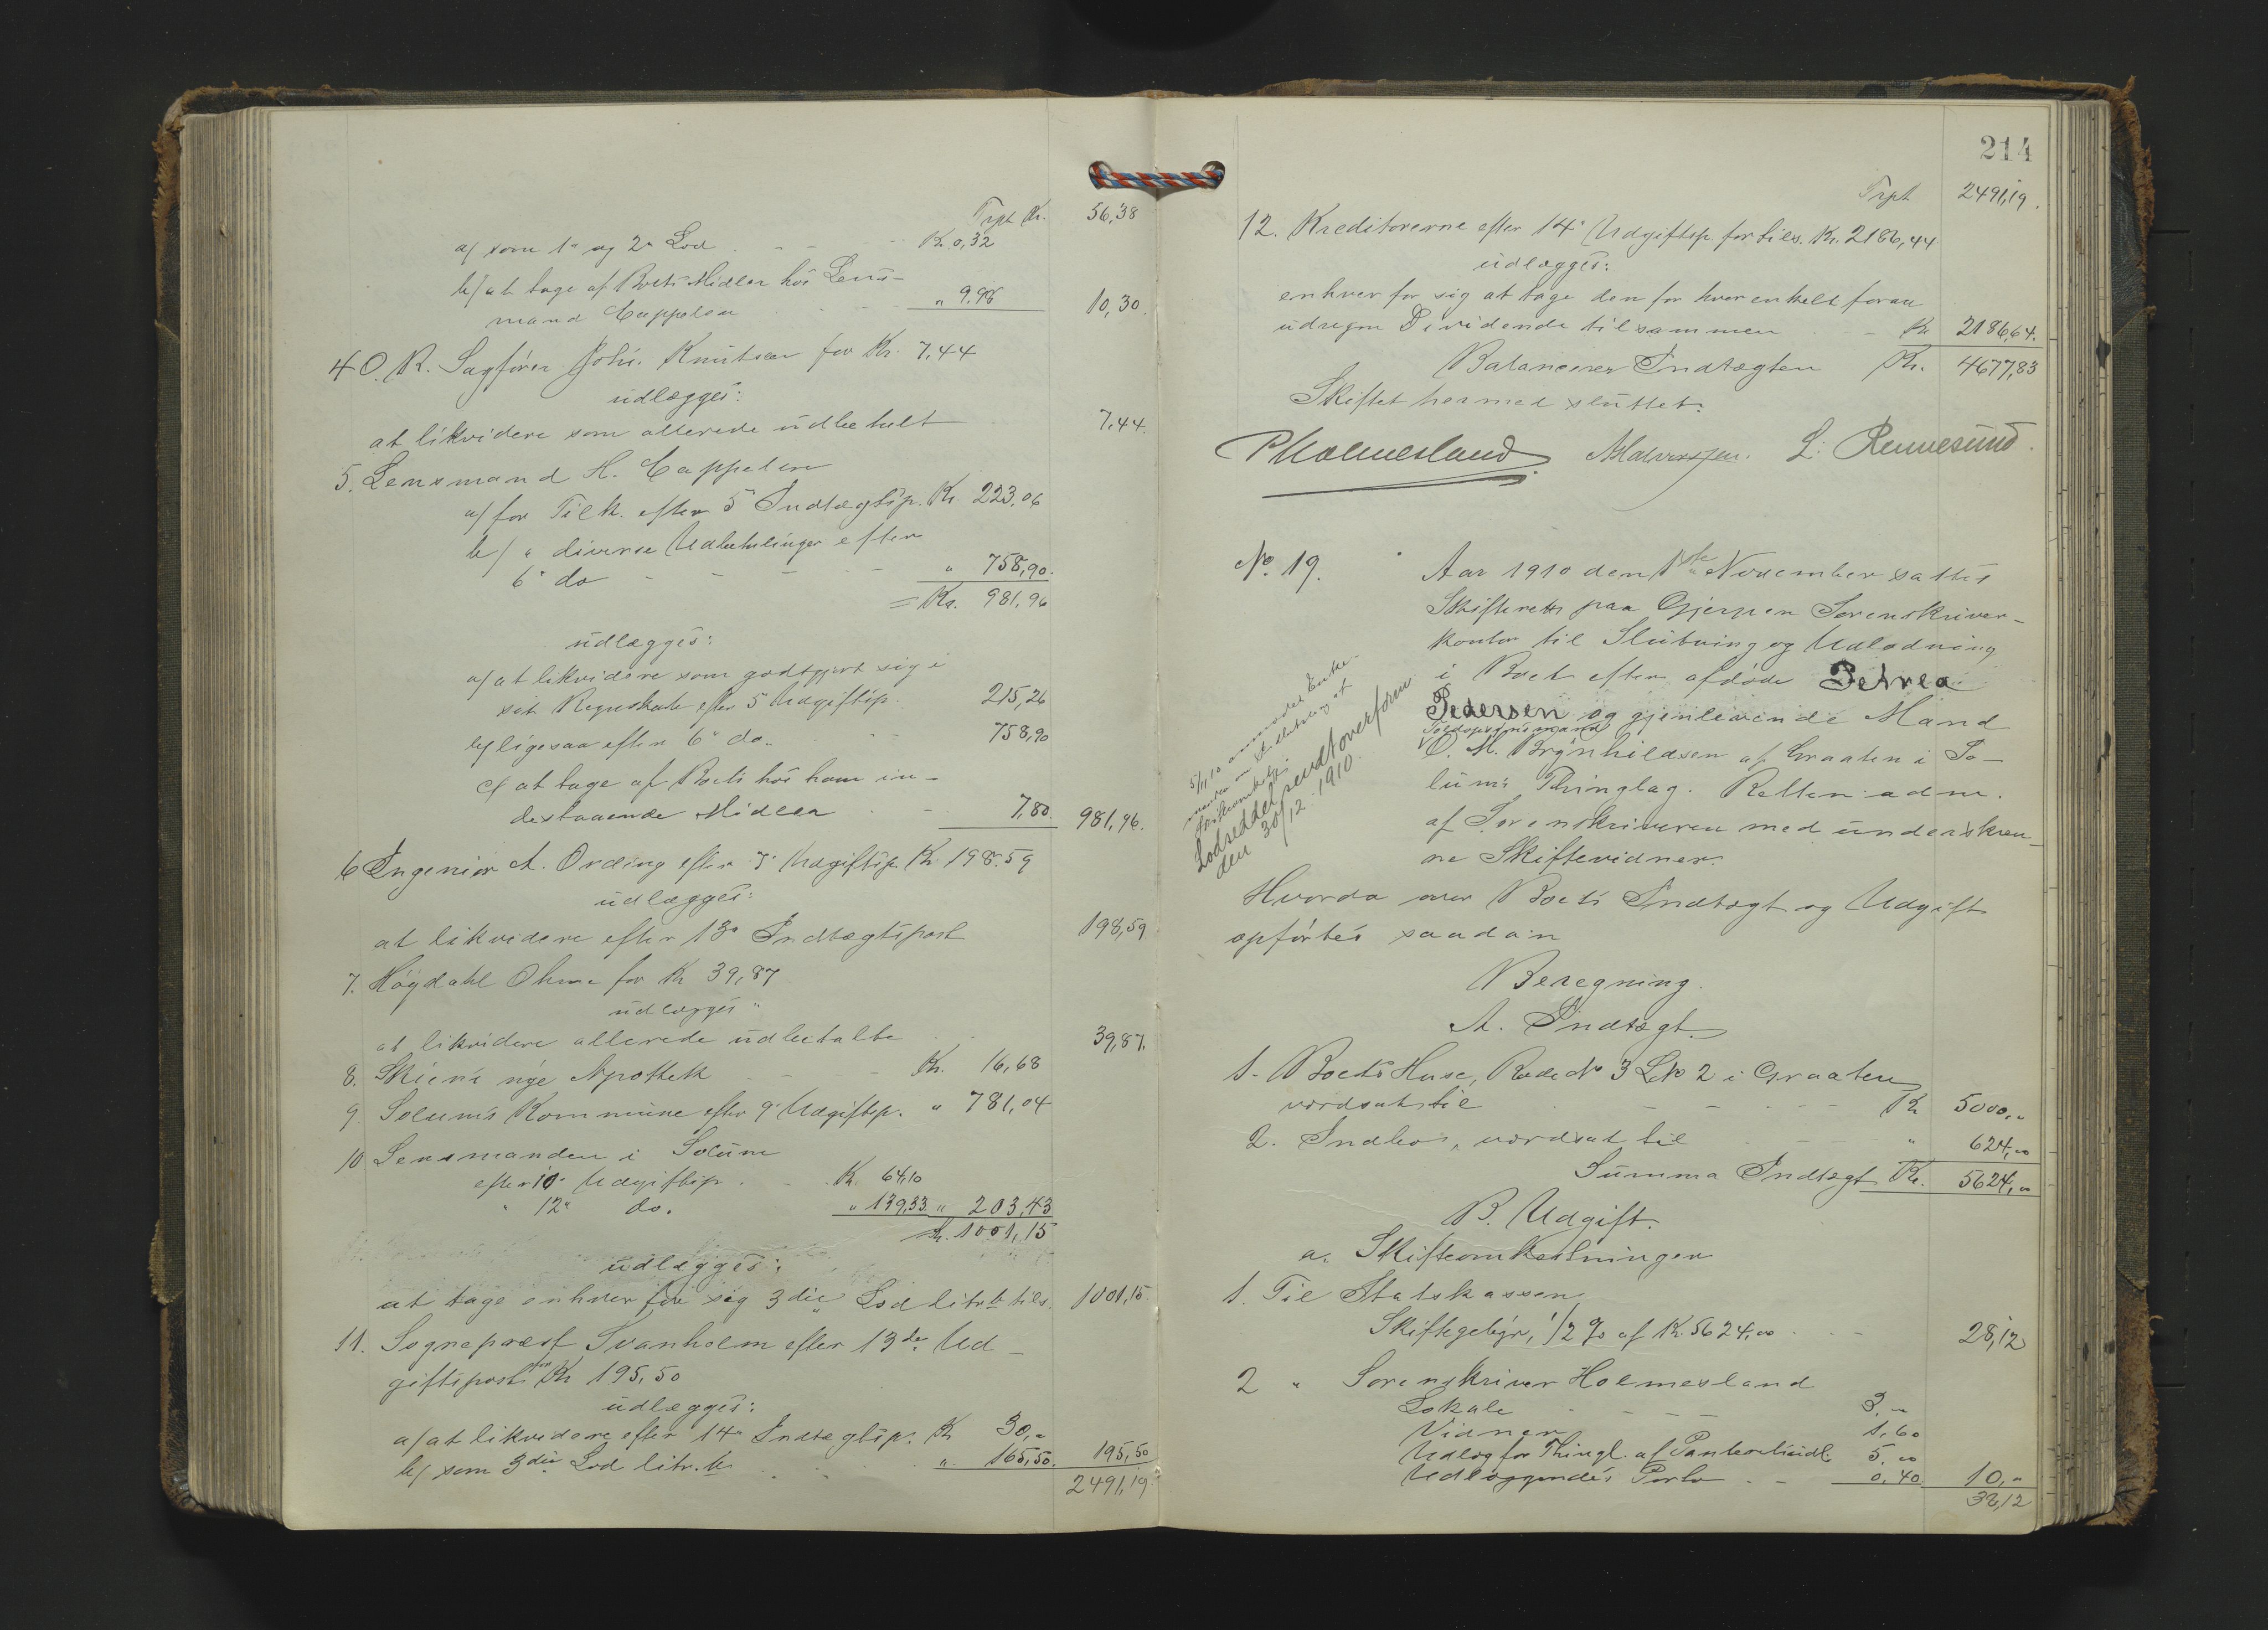 Trpt Kr. 56,38
a/ som 1ª og 2ª Lod Kr. 0,32
b/ at tage af Boets Midler hos Lens-
mand Cappelen " 9.98 10,30.
4 O. R. Sagfører Johs. Knutsen for Kr. 7,44
udlægges:
at likvidere som allerede udbetalt 7,44.
5. Lensmand H. Cappelen
a/ for Tilk. efter 5ª Indtægtsp. Kr. 223,06
b/ " diverse Udbetalinger efter
6ª do " 758,90.
= Kr. 981,96
udlægges:
a/ at likvidere som godtgjort sig i
sit Regnskab efter 5ª Udgiftsp. 215,26
b/ ligesaa efter 6ª do. 758,90
c/ at tage af Boets hos ham in-
destaaende Midler 7,80. 981,96.
6 Ingeniør A. Ording efter 7ª Udgiftsp. Kr. 198.59
udlægges:
at likvidere efter 13ª Indtægtspost 198,59
7. Høgdahl Ohme for Kr 39,87
udlægges "
at likvidere allerede udbetalte 39,87.
8. Skiens nye Apothek Kr. 16,68
9. Solums Kommune efter 9ª Udgiftsp. " 781,04
10 Lensmanden i Solum
efter 10ª Udgiftsp. Kr. 64,10
" 12ª do. " 139,33. " 203,43
Kr. 1001,15
udlægges:
at tage enhver for sig 3die Lod litr. b tils. 1001,15
11. Sogneprest Svanholm efter 13de Ud-
giftspost for Kr 195,50
udlægges:
a/ at likvidere efter 14ª Indtægtsp. Kr 30,-
b/ som 3die Lod litr. b " 165,50. 195,50
2491,19.
214
Trpt 2491,19.
12. Kreditorerne efter 14ª Udgiftsp. for tils. Kr. 2186,44
udlægges:
enhver for sig at tage den for hver enkelt foran
udregne Dividende tilsammen Kr 2186,64.
Balancerer Indtægten Kr. 4677,83
Skiftet hermed sluttet.
P Holmesland A Halvorsen. L. Rennesund.
No. 19. Aar 1910 den 1ste November sattes
Skifteret paa Gjerpen Sorenskriver-
kontor til Slutning og Udlodning
i Boet efter afdøde Petrea
Pedersen og gjenlevende Mand
Toldopsynsmand
O. M. Brynhildsen af Graaten i So-
lums Thinglag. Retten adm.
af Sorenskriveren med underskrev-
ne Skiftevidner.
5/11 10 anmodet Enke-
manden om Stadfæstelse
Lodseddel sendt overform.
den 30/12 1910.
Hvorda over Boets Indtægt og Udgift
opførtes saadan
Beregning.
A. Indtægt
1. Boets Huse, Rode No 3 L No 2 i Graaten
værdsat til Kr 5000,-
2. Indbo, værdsat til " 624,00
Summa Indtægt Kr. 5624,00
B. Udgift.
a. Skifteomkostninger
1. Til Statskassen
Skiftegebyr, 1/2 % af Kr. 5624,00 28,12
2 " Sorenskriver Holmesland
Lokale 3,-
Vidner 1,60
Udlæg for Thingl. af Panterettsudl. 5,00
Udlæggendes Porto 0,40. 10,-
38,12